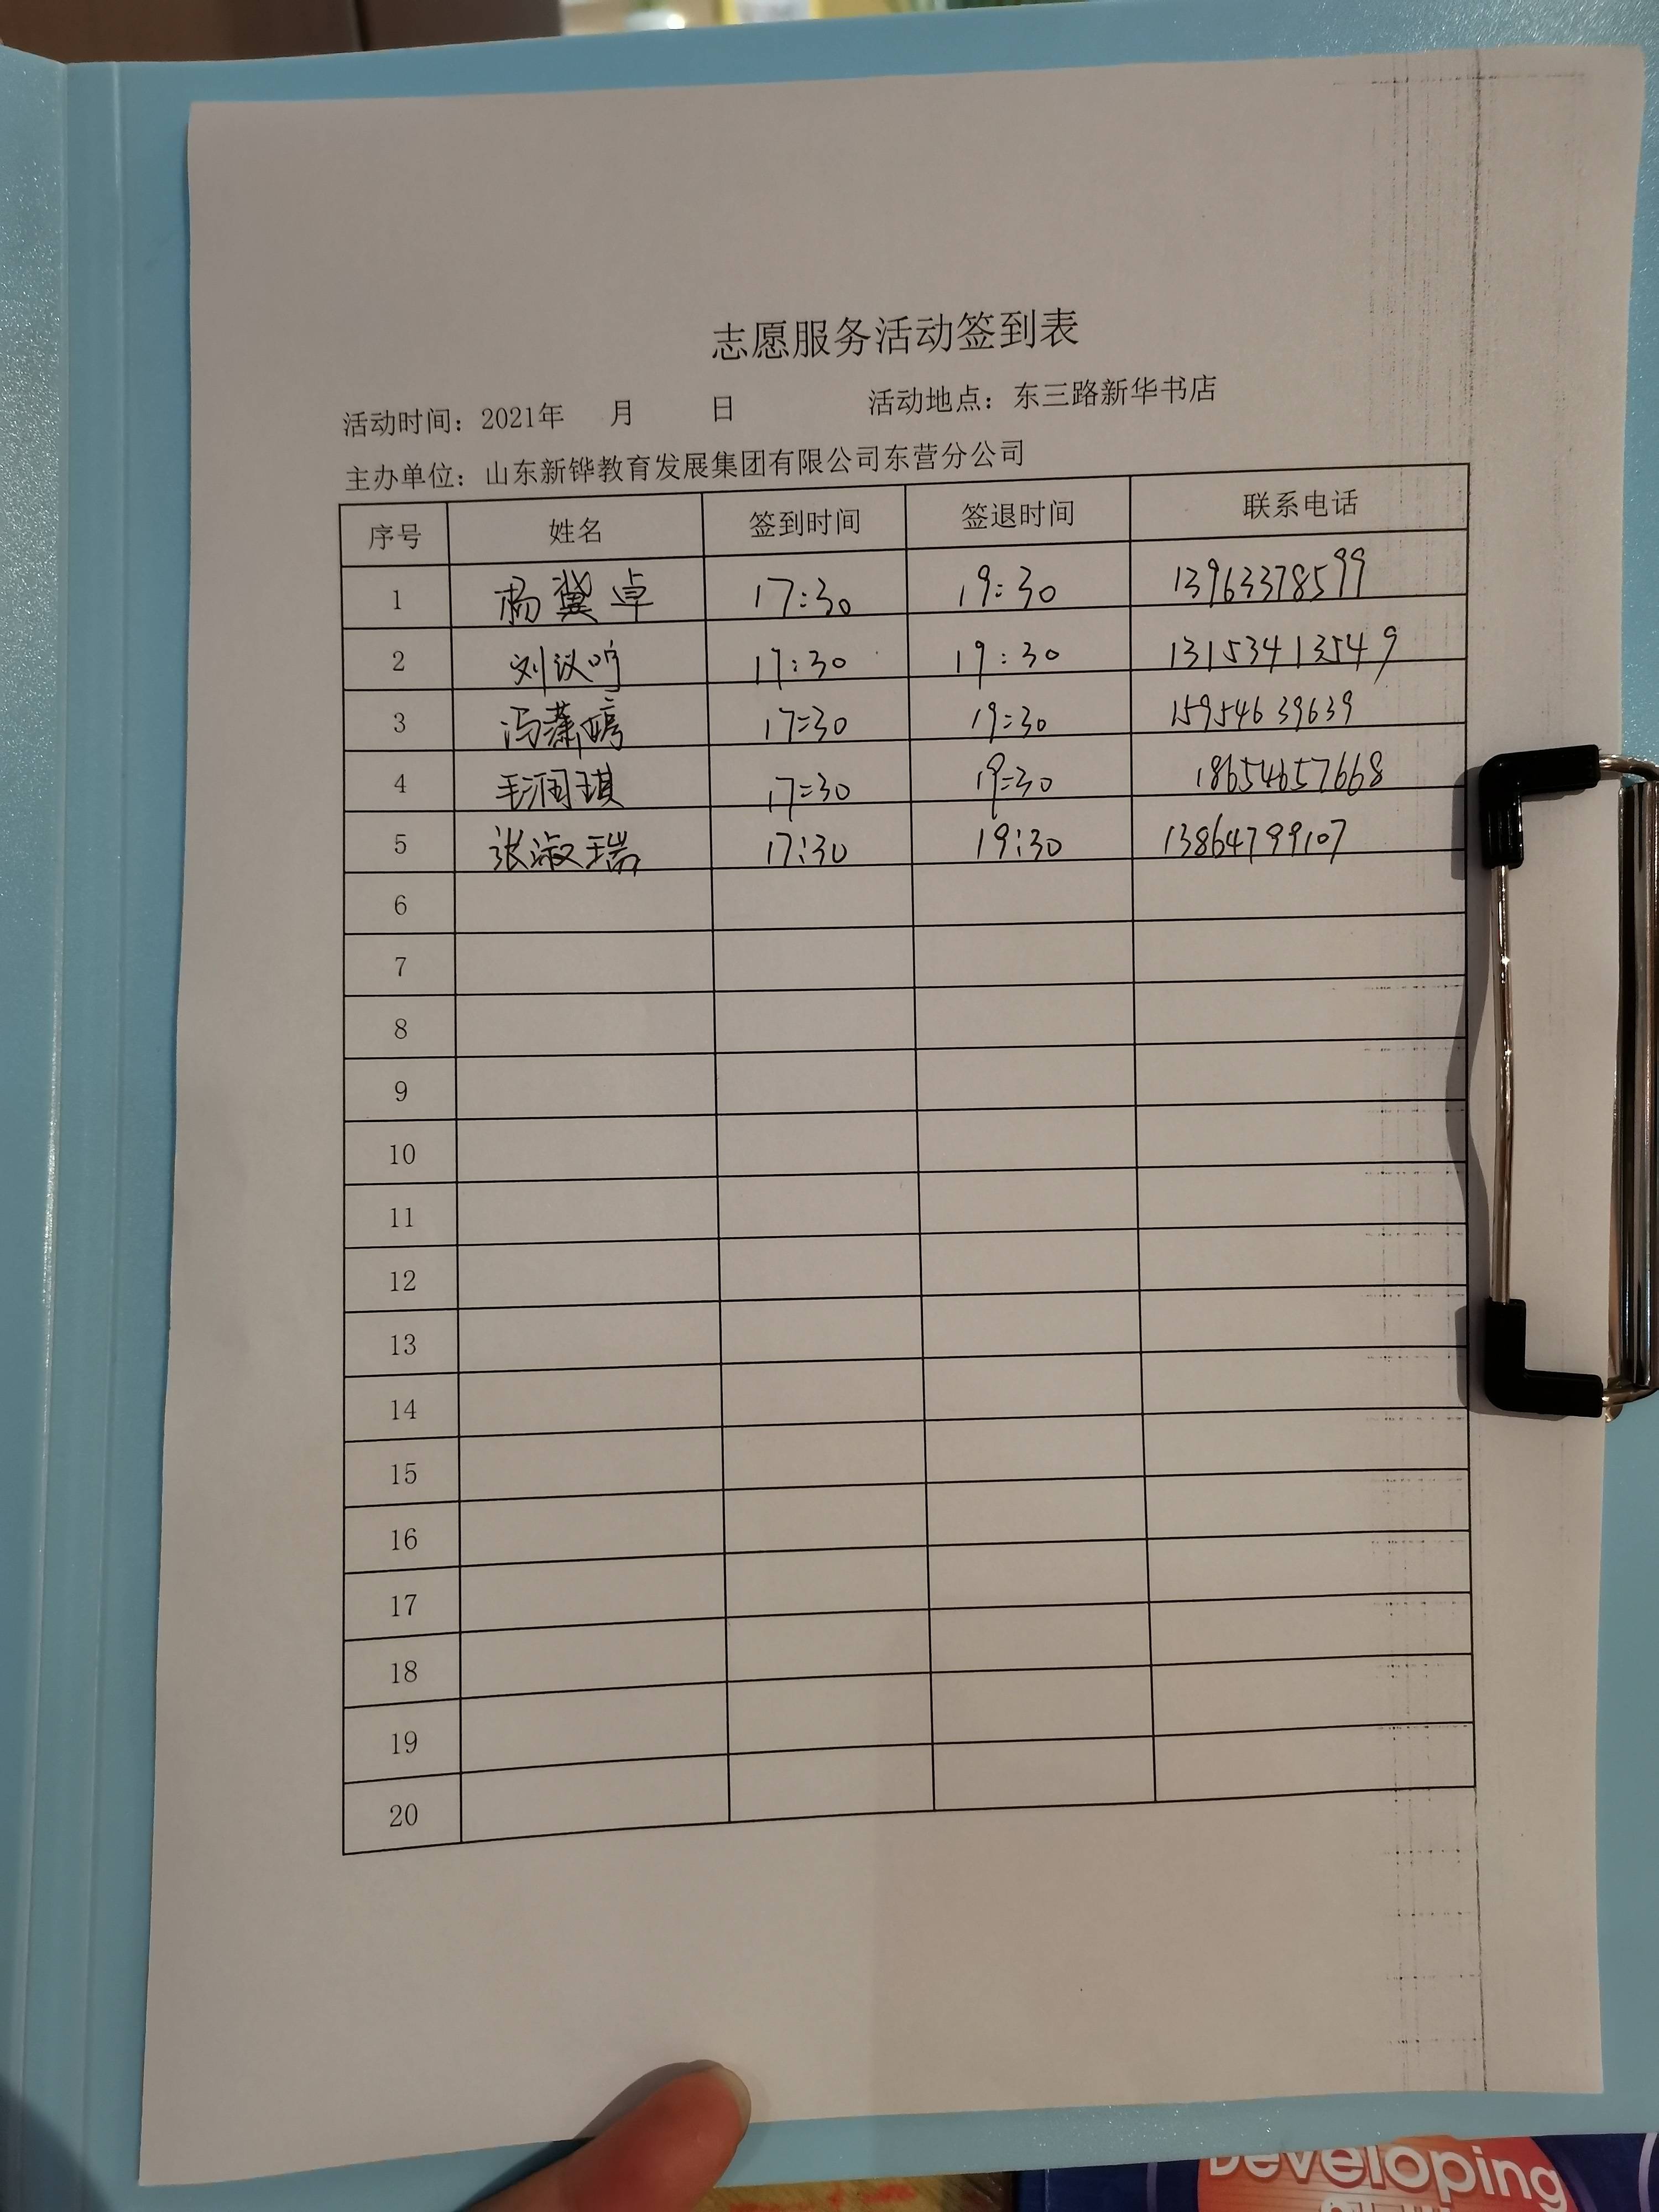 志愿服务活动签到表
活动时间：2021年 月 日 活动地点：东三路新华书店
主办单位：山东新铧教育发展集团有限公司东营分公司
序号 姓名 签到时间 签退时间 联系电话
1 杨冀卓 17:30 19:30 13963378599
2 刘议 17:30 19:30 13153413549
3 冯潇 17:30 19:30 15954639639
4 毛润琪 17:30 19:30 18654657668
5 张淑瑞 17:30 19:30 13864799107
6
7
8
9
10
11
12
13
14
15
16
17
18
19
20
Developing